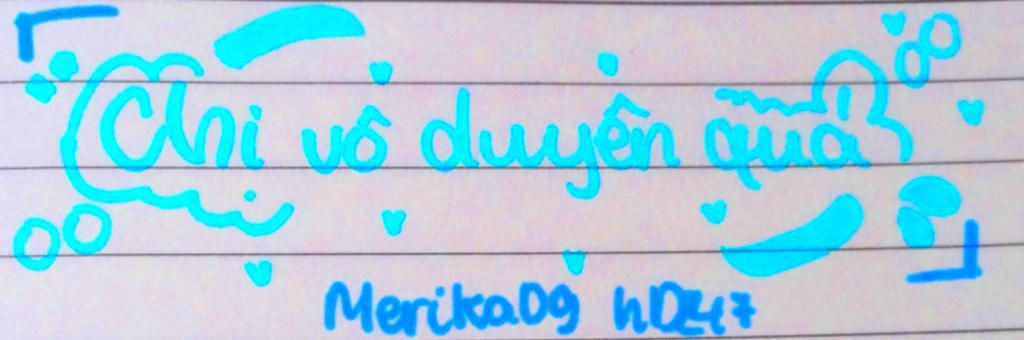 Chị vô duyên quá
Merika09 hD247